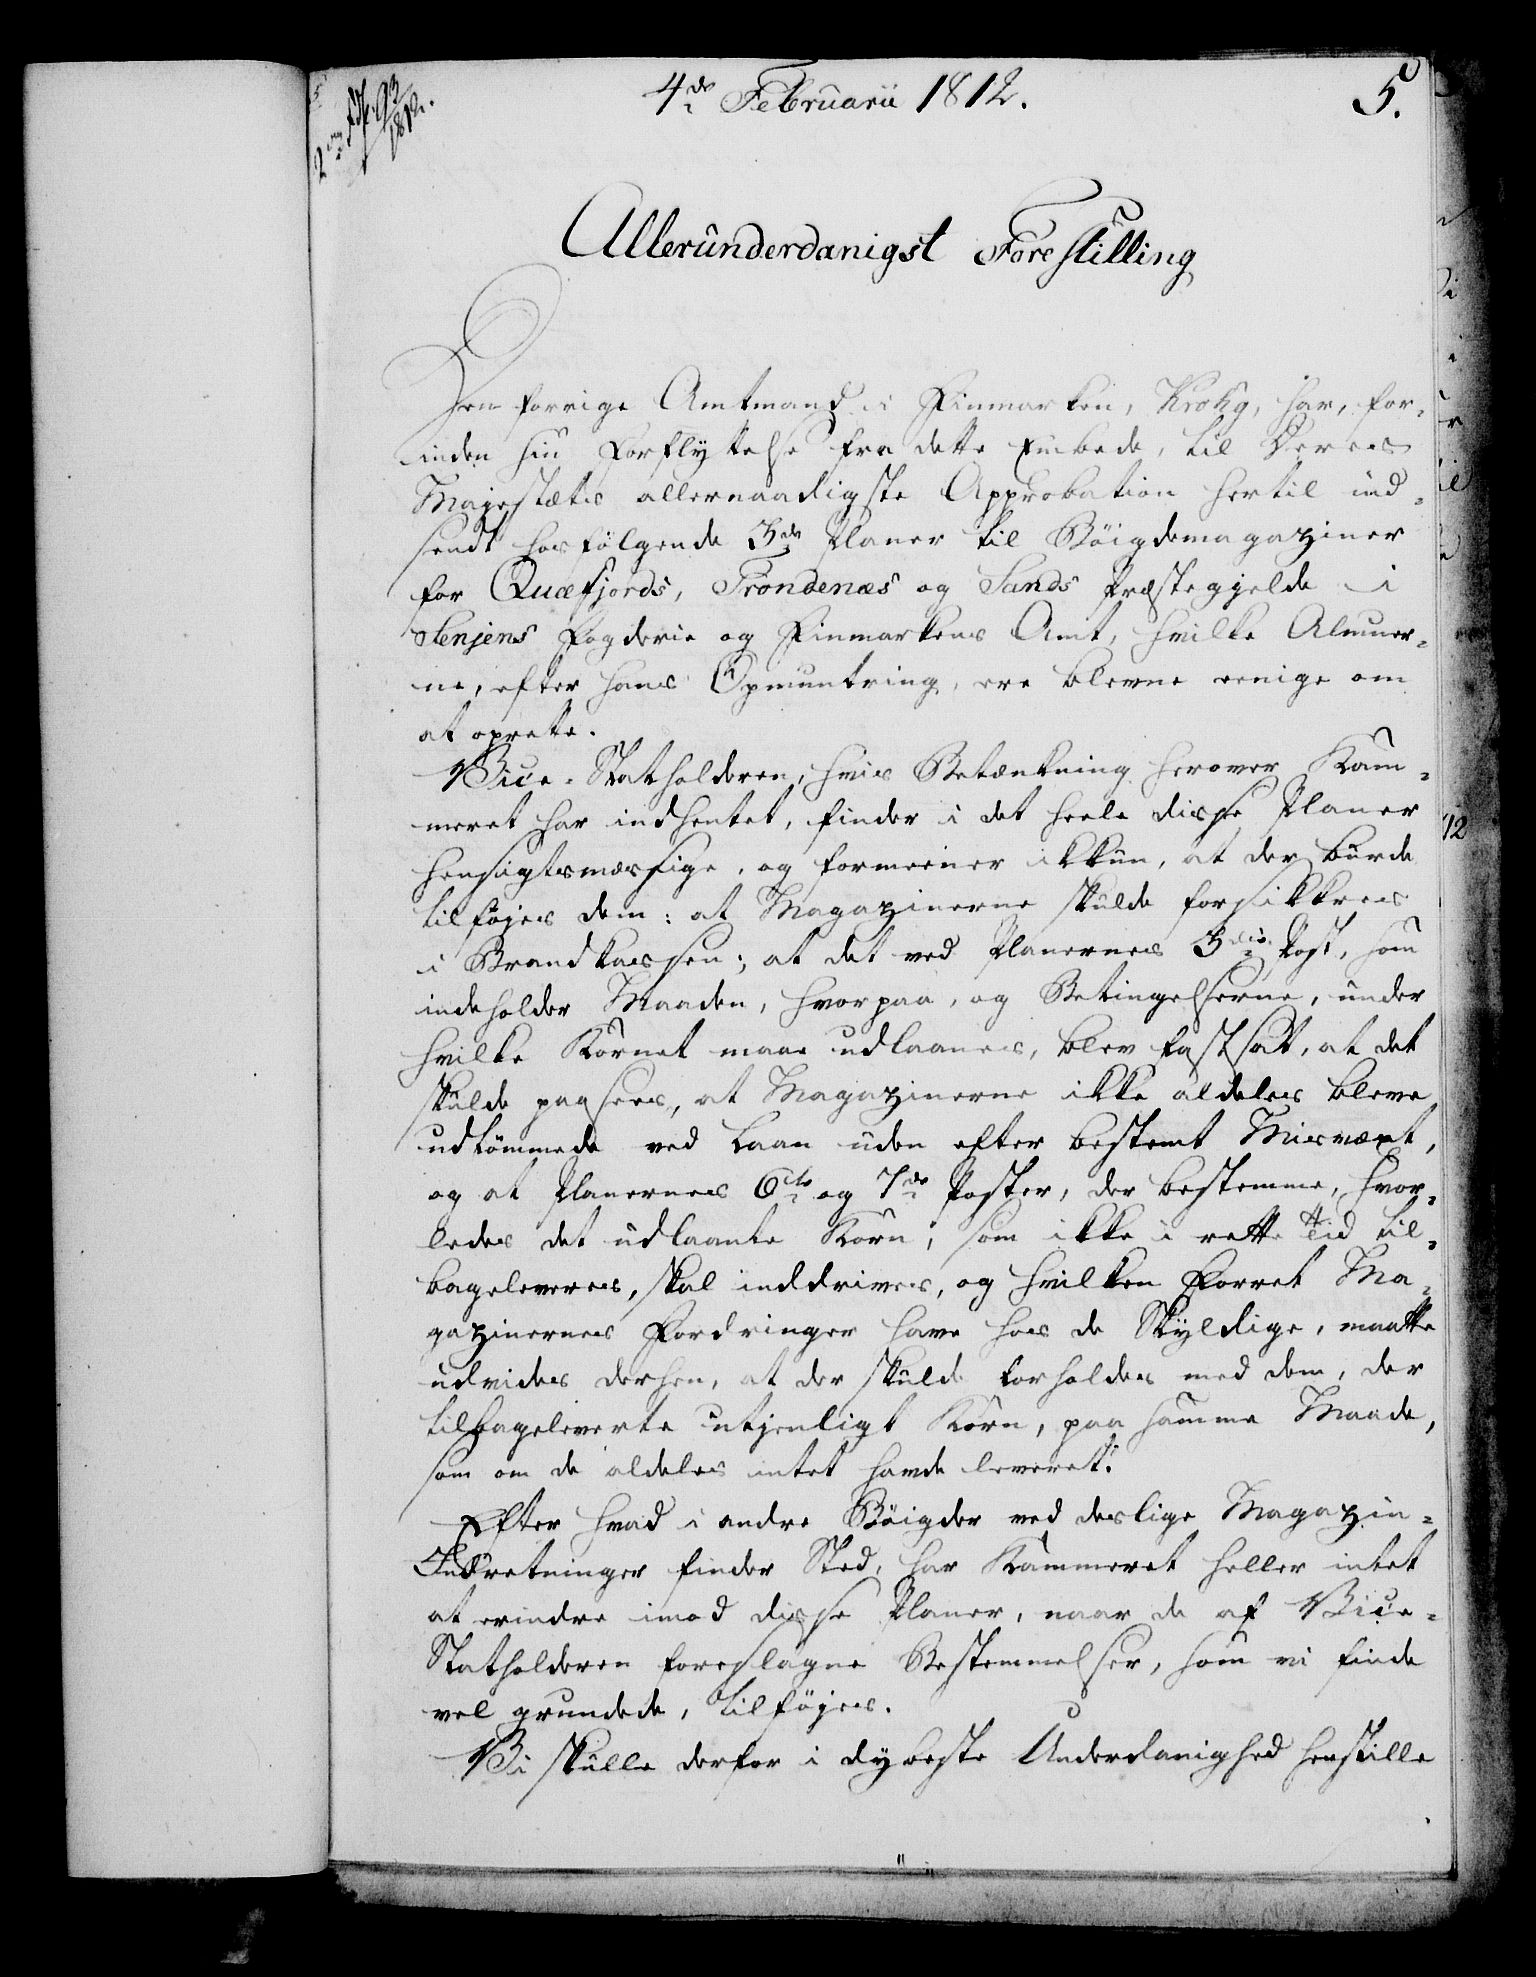 4de Februarii 1812.
5.
Allerunderdanigst Forestilling
Den forrige Amtmand i Finmarken, Krohg, har, for-
inden hin Forflyttelse fra dette Embede, til Deres
Majestæts allernaadigste Approbation hertil ind-
sendt hosfølgende 3de Planer til Bøigdemagaziner
for Quæfjords, Trondenæs og Sands Præstegjelde i
Senjens Fogderie og Finmarkens Amt, hvilke Almuer-
ne, efter hans Opmuntring, ere blevne eenige om
at oprette.
Vice-Statholderen, hvis Betænkning herover Kam-
meret har indhentet, finder i det heele disse Planer
hensigtsmæssige, og formeener ikkun, at der burde
tilføjes dem: at Magazinerne skulde forsikkres
i Brandkassen; at det ved Planernes 3die Post, som
indeholder Maaden, hvorpaa, og Betingelserne, under
hvilke Kornet maae udlaanes, blev fastsat, at det
skulde paasees, at Magazinerne ikke aldeles bleve
udtømmede ved Laan uden efter bestemt Misvæxt,
og at Planernes 6te og 7de Poster, der bestemme, hvor-
ledes det udlaante Korn, som ikke i rette Tid til-
bageleveres, skal inddrives, og hvilken Forret Ma-
gazinernes Fordringer have hos de Skyldige, maatte
udvides derhen, at der skulde forholdes med dem, der
tilbageleverte utjenligt Korn, paa samme Maade,
som om de aldeles intet havde leveret.
Efter hvad i andre Bøigder ved deslige Magazin-
Indretninger finder Sted, har Kammeret heller intet
at erindre imod disse Planer, naar de af Vice-
Statholderen foreslagne Bestemmelser, som vi finde
vel grundede, tilføjes.
Vi skulle derfor i dybeste Underdanighed henstille